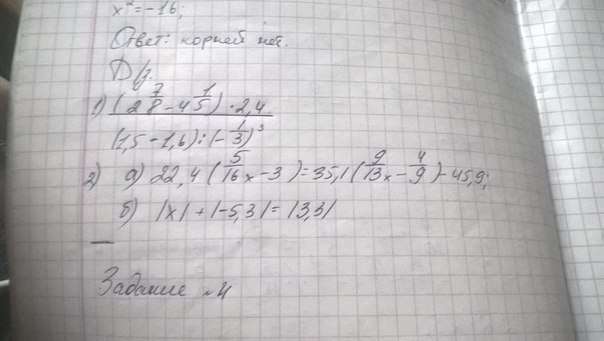 x²=-16;
Ответ: корней нет.
Д/з.
1) (2 7/8 - 4 1/5) · 2,4
(1,5 - 1,6) : (- 1/3)³
2) а) 22,4 (5/16 x - 3) = 35,1 (9/13 x - 4/9) - 45,9;
б) |x| + |-5,3| = |3,3|
Задание №4